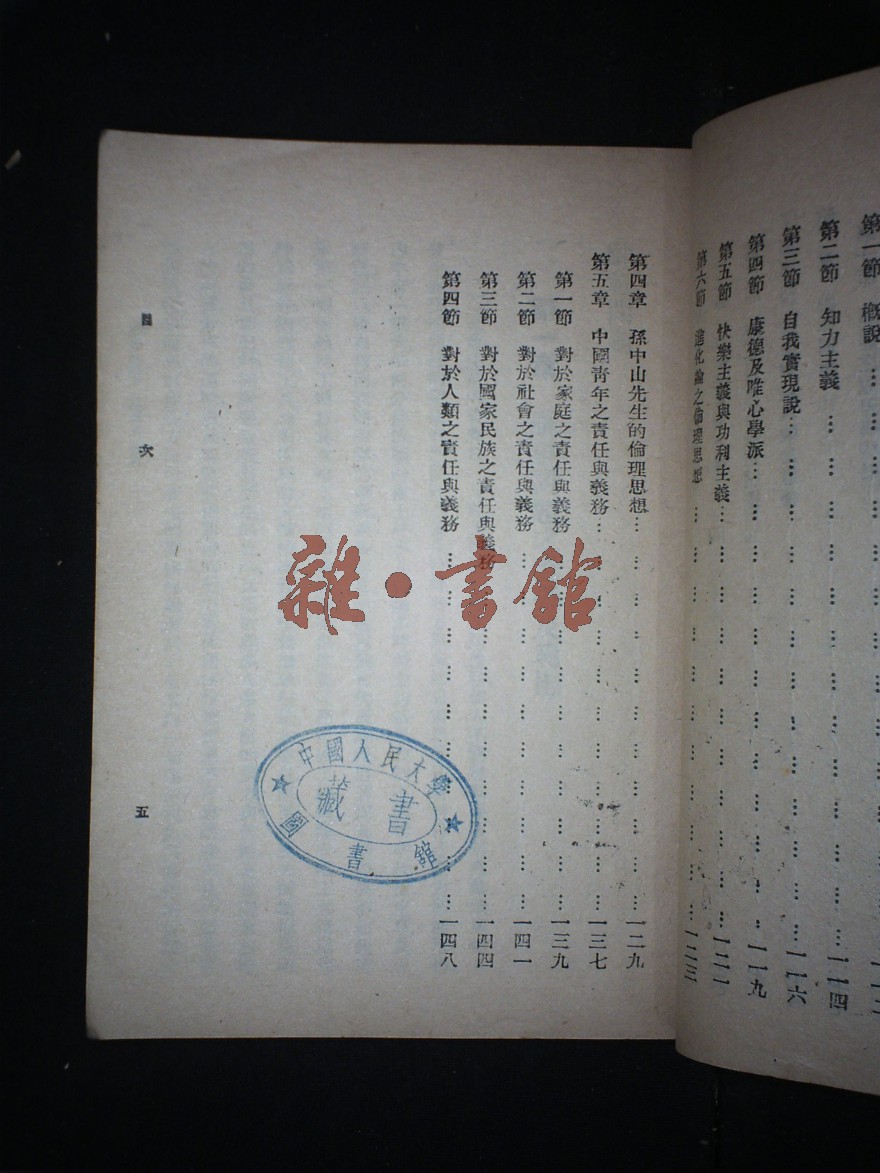 第一節 概說
第二節 知力主義 一一四
第三節 自我實現說 一一六
第四節 康德及唯心學派 一一九
第五節 快樂主義與功利主義 一二一
第六節 進化論之倫理思想 一二三
第四章 孫中山先生的倫理思想 一二九
第五章 中國青年之責任與義務 一三七
第一節 對於家庭之責任與義務 一三九
第二節 對於社會之責任與義務 一四一
第三節 對於國家民族之責任與義務 一四四
第四節 對於人類之責任與義務 一四八
目次
五
中國人民大學
圖書館
藏書
雜·書館